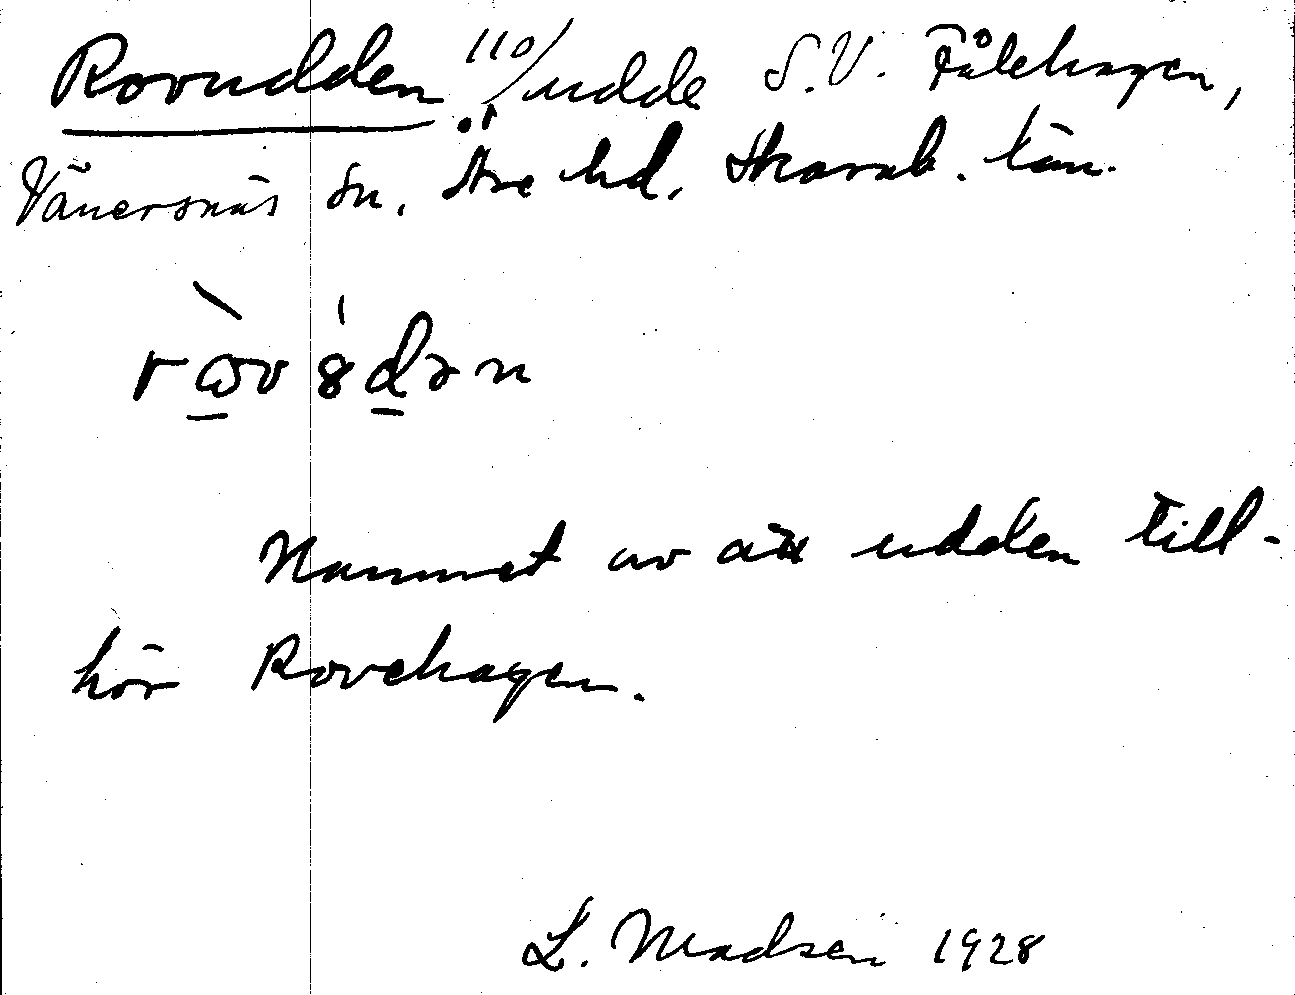 Rovudden 110/ udde S.V. Fålehagen,
Vänersnäs sn, Åse hd, Skarab. län.
ròv ꞷdən
Namnet av att udden till-
hör Rovehagen.
L. Madsen 1928